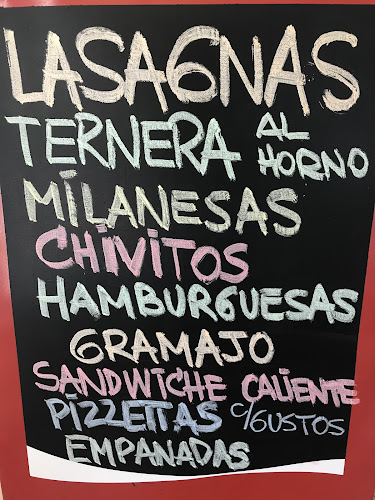 LASAGNAS
TERNERA AL HORNO
MILANESAS
CHIVITOS
HAMBURGUESAS
GRAMAJO
SANDWICHE CALIENTE
PIZZETTAS C/GUSTOS
EMPANADAS